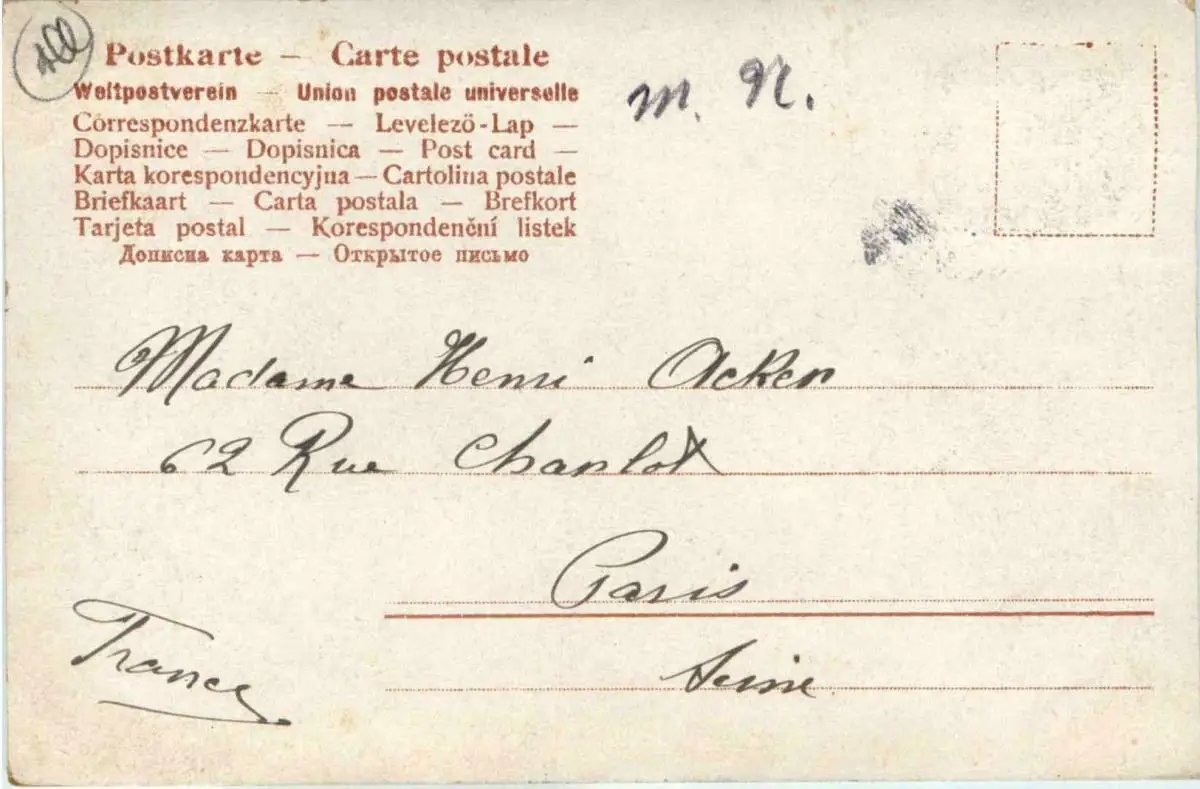 Postkarte — Carte postale
Weltpostverein — Union postale universelle
Correspondenzkarte — Levelező-Lap —
Dopisnice — Dopisnica — Post card —
Karta korespondencyjna — Cartolina postale
Briefkaart — Carta postala — Brefkort
Tarjeta postal — Korespondenční listek
Дописна карта — Открытое письмо
m. N.
Madame Henri Acker
62 Rue Charlot
Paris
Seine
France